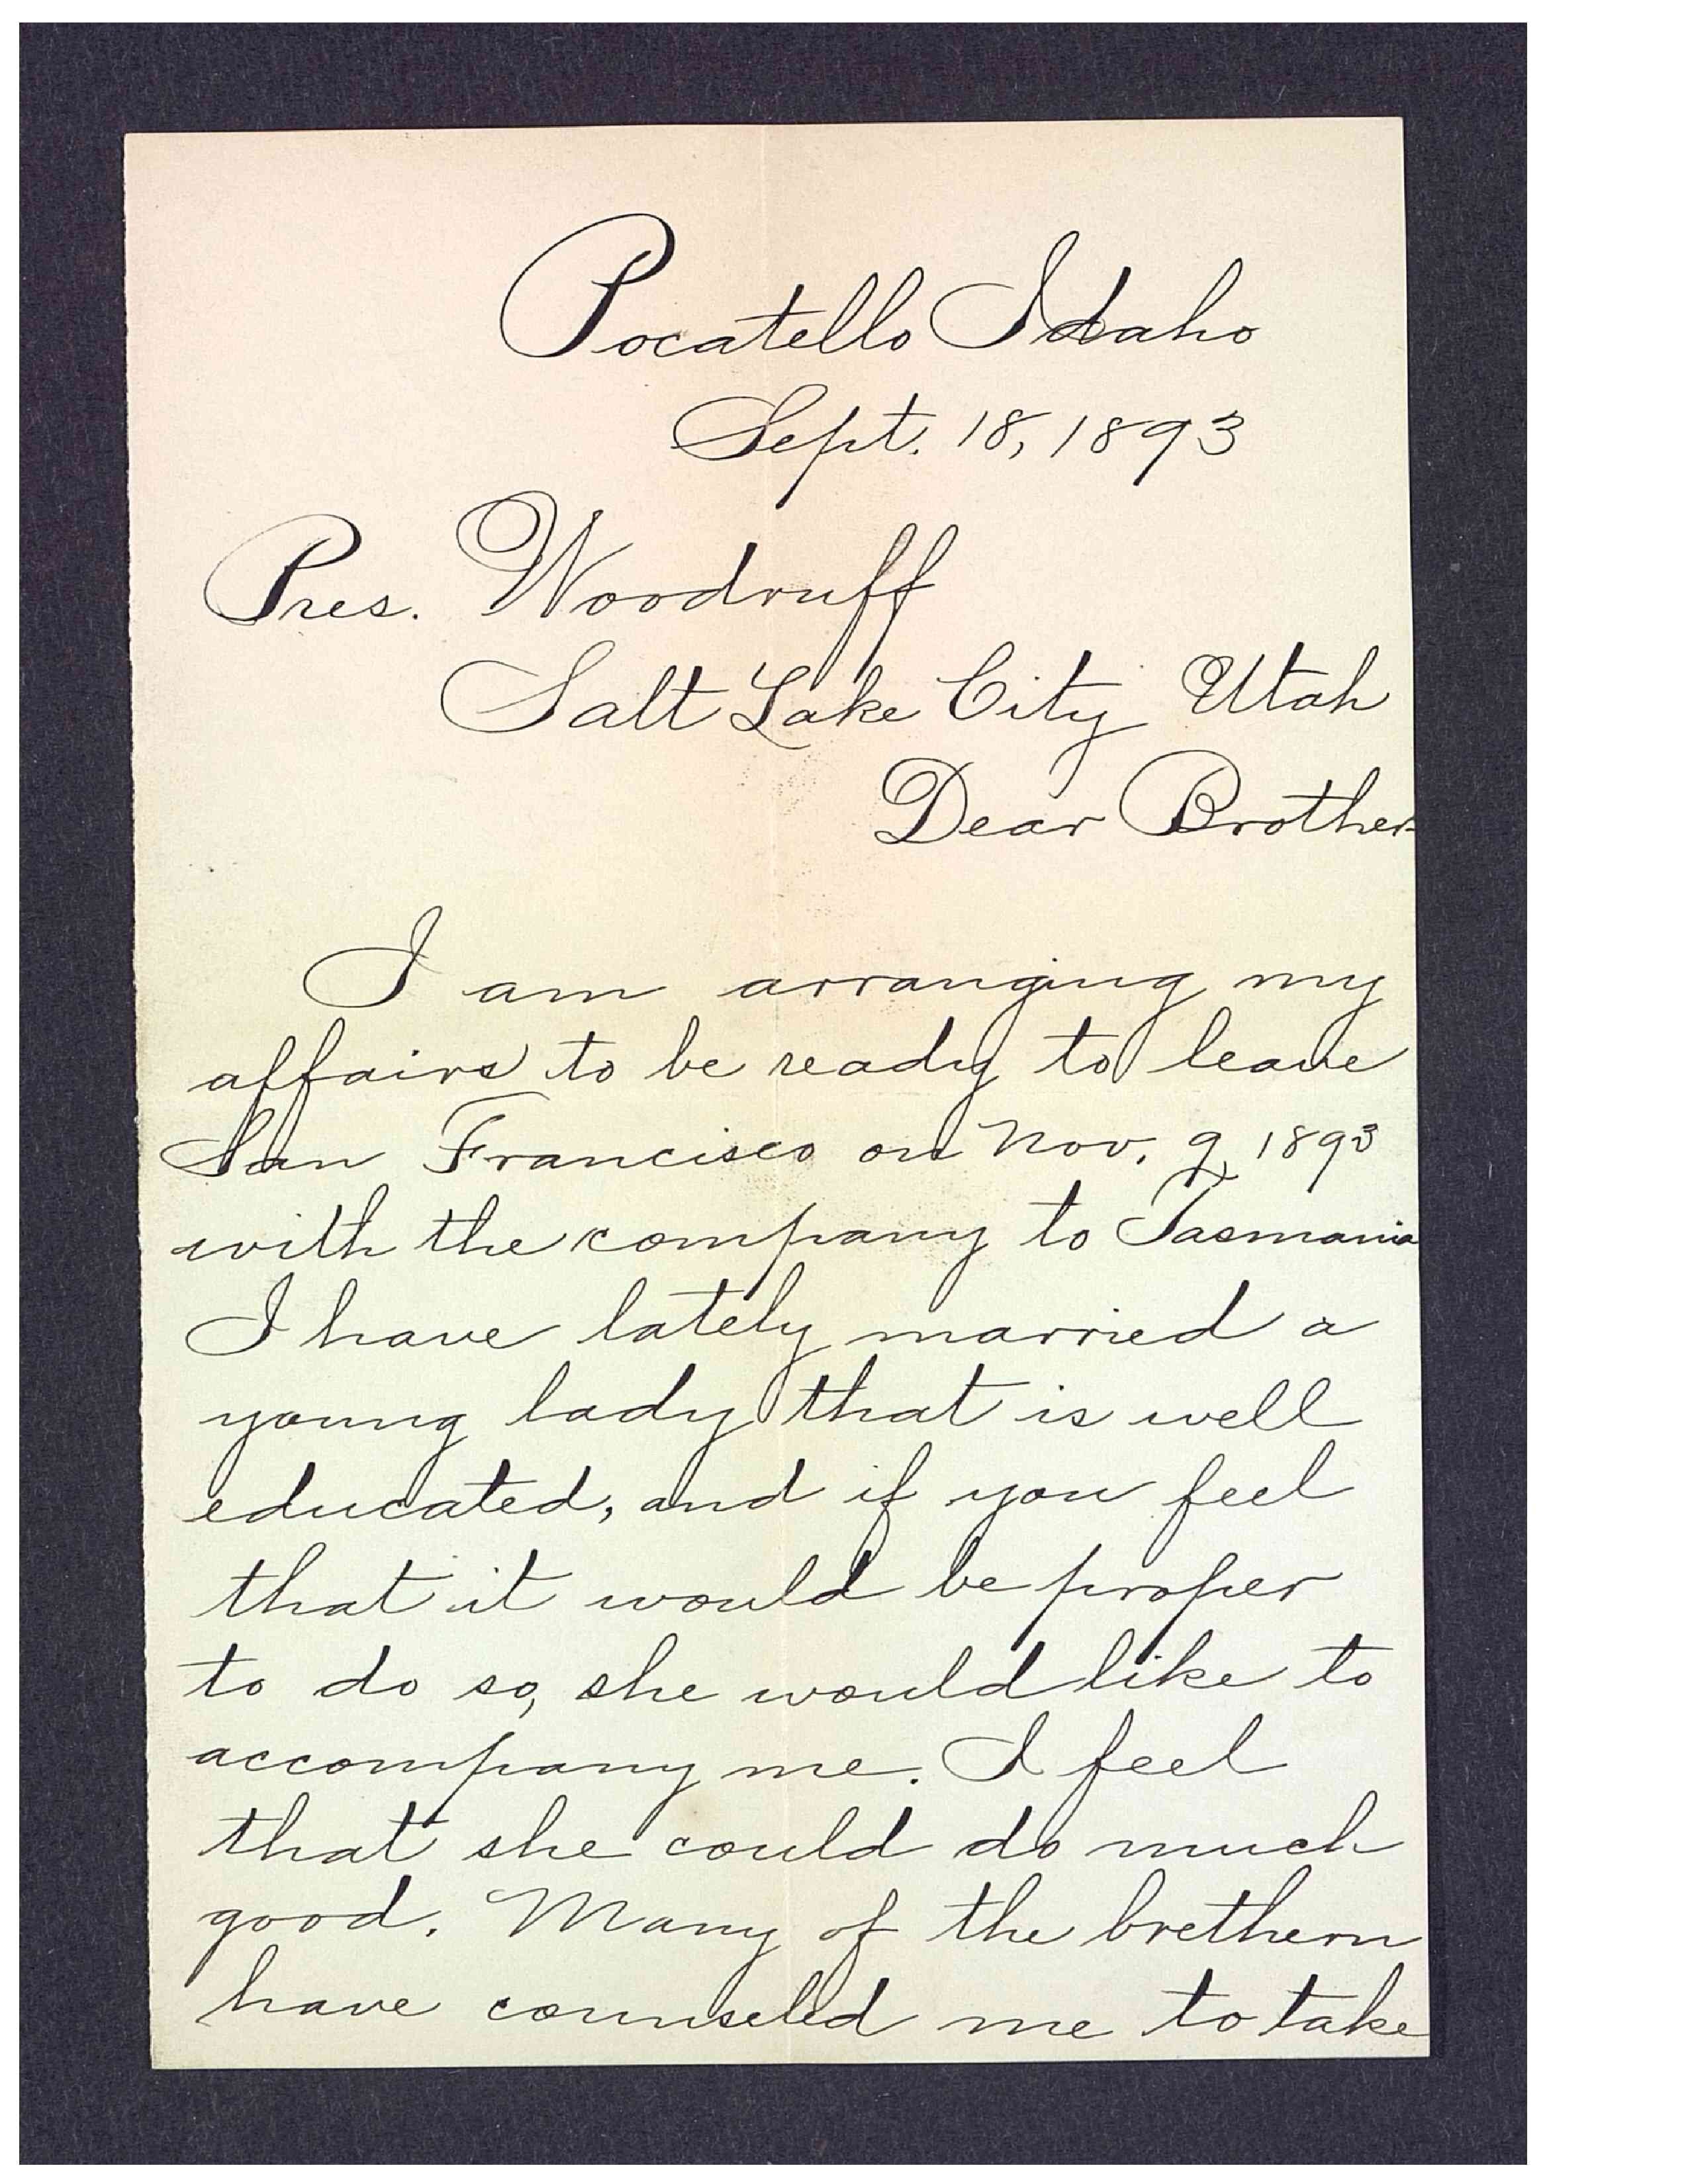 Pocatello Idaho
Sept. 18, 1893
Pres. Woodruff
Salt Lake City Utah
Dear Brother
I am arranging my
affairs to be ready to leave
San Francisco on Nov. 9, 1893
with the company to Tasmania
I have lately married a
young lady that is well
educated, and if you feel
that it would be proper
to do so, she would like to
accompany me. I feel
that she could do much
good. Many of the brethern
have counseled me to take